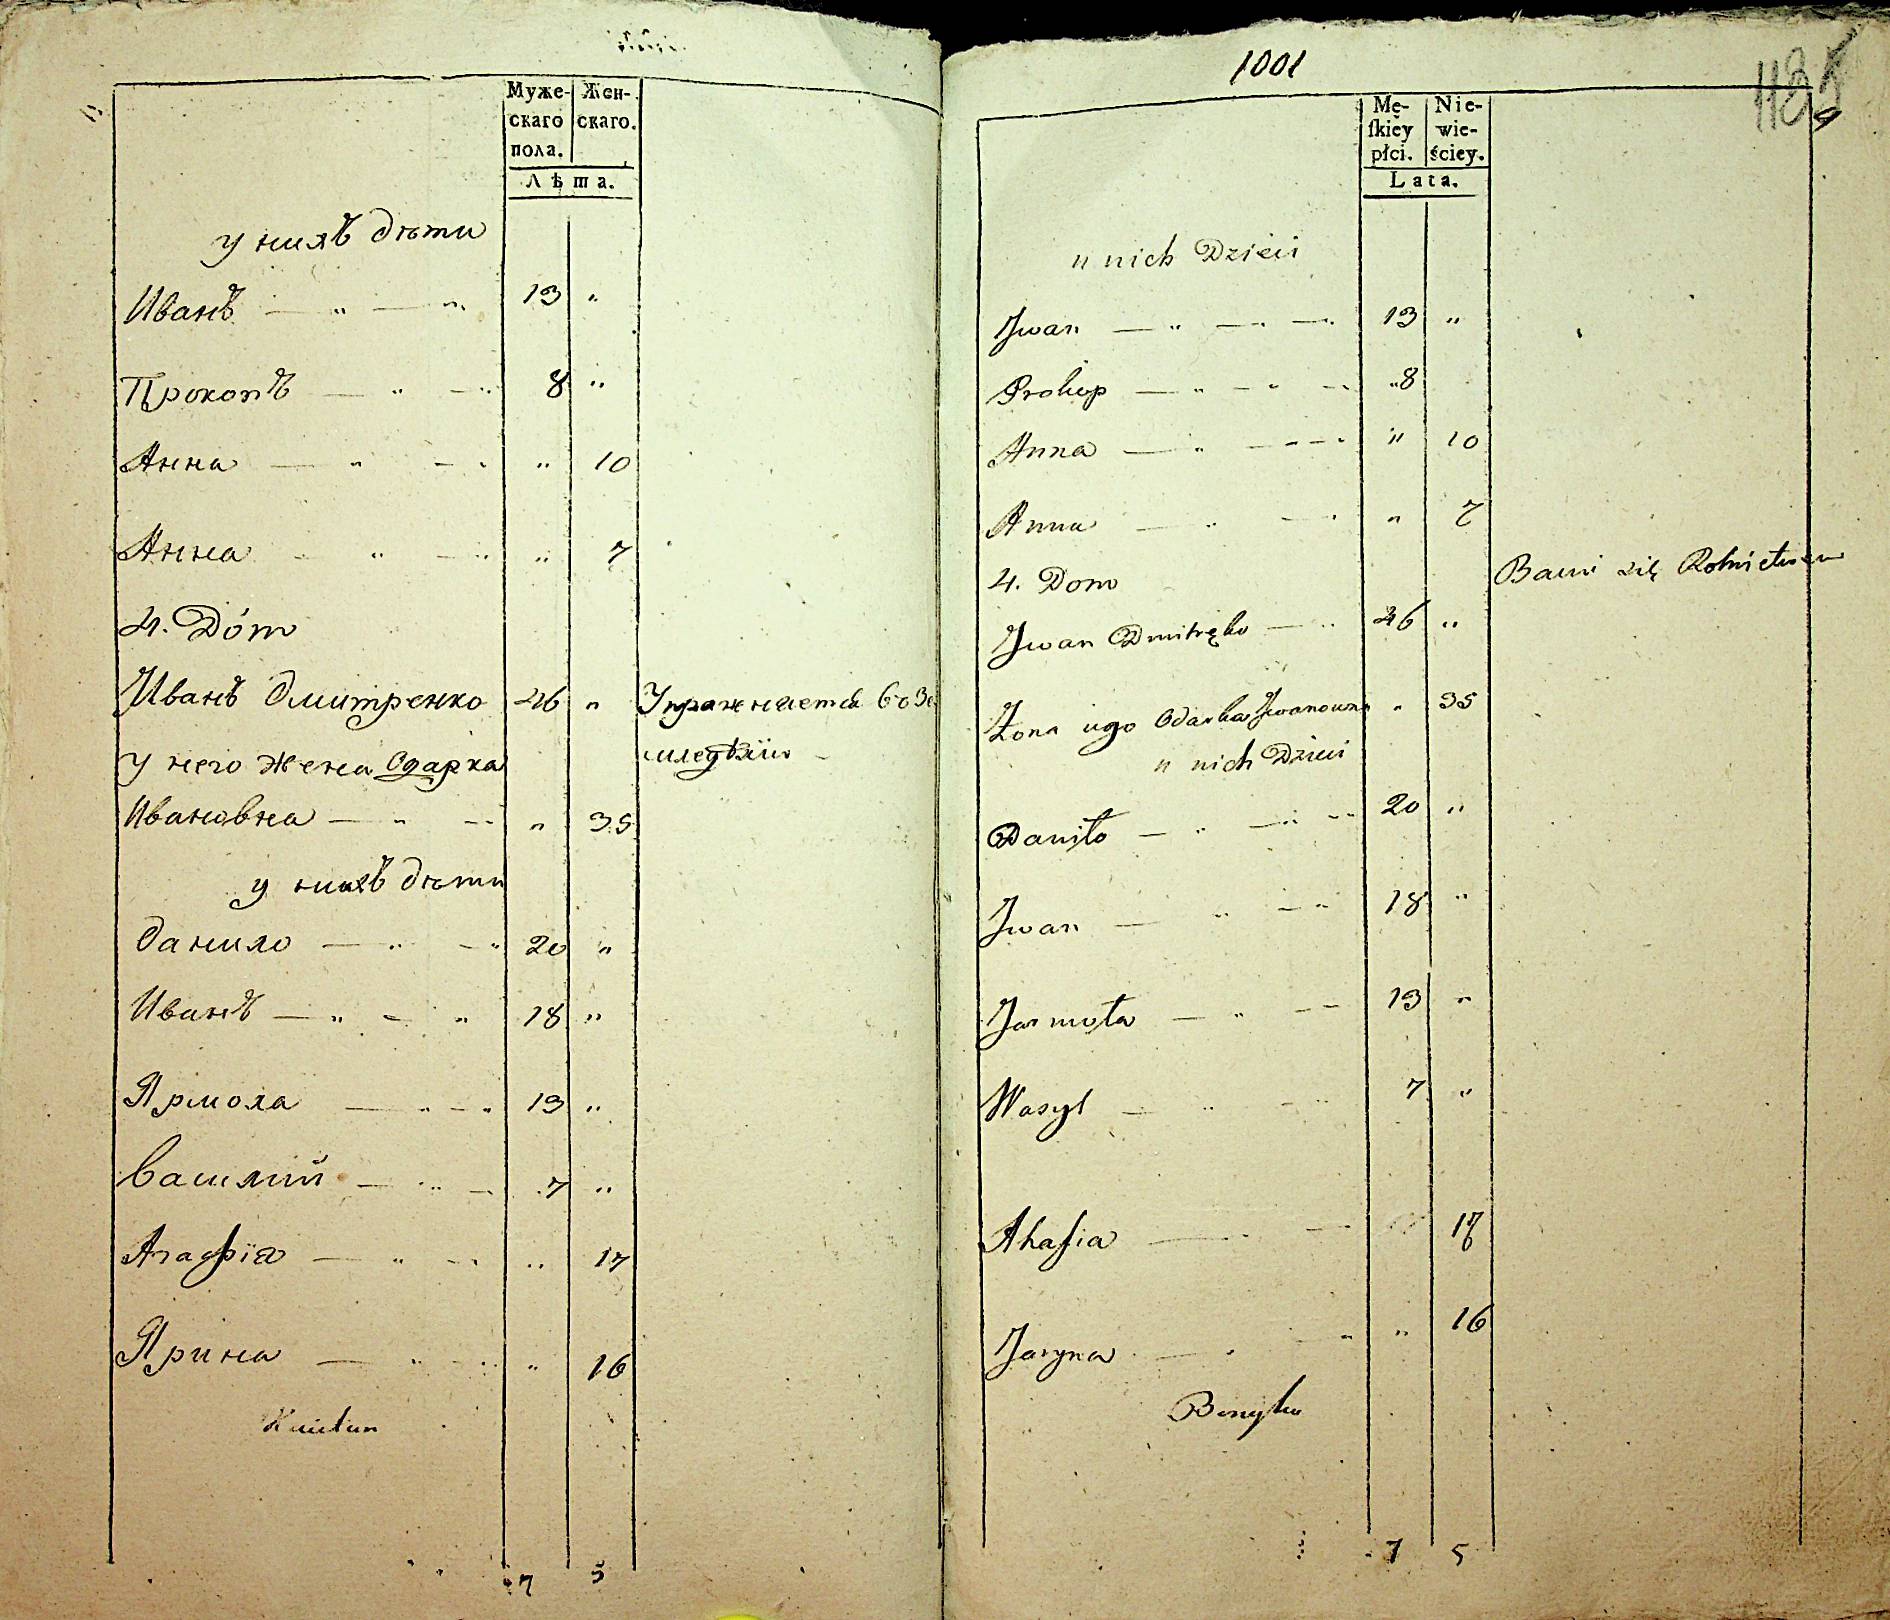 Муже- Жен-
скаго скаго.
пола.
Лѣта.
у нихъ дѣти
Иванъ — „ — „ 13 „
Прокопъ — „ — „ 8 „
Анна — „ — „ „ 10
Анна — „ — „ „ 7
4. Dóm
Иванъ Дмитренко 46 „ Упражняется въ Зе
у него жена Одарка мледѣлiи
Ивановна — „ — „ „ 35
у нихъ дѣти
Данило — „ — „ 20 „
Иванъ — „ — „ 18 „
Ярмола — „ — „ 13 „
Василий — „ — 7 „
Агафiя — „ — „ „ 17
Ярина — „ — „ „ 16
7 5
1001
Mę- Nie-
ſkiéy wie-
płci. ściey.
Lata.
u nich Dzieci
Jwan — „ — „ — 13 „
Prokop — „ — „ — „8
Anna — „ — — — „ 10
Anna — „ — „ „ 7
4. Dom Bawi się Rolnictwem
Jwan Dmitręko — „ 46 „
Żona iego Odarka Jwanowna „ 35
u nich Dzieci
Daniło — „ — „ — 20 „
Jwan — „ — „ 18 „
Jarmoła — „ — 13 „
Wasyl — „ — „ 7 „
Ahafia — — 17
Jaryna — „ — „ „ 16
7 5